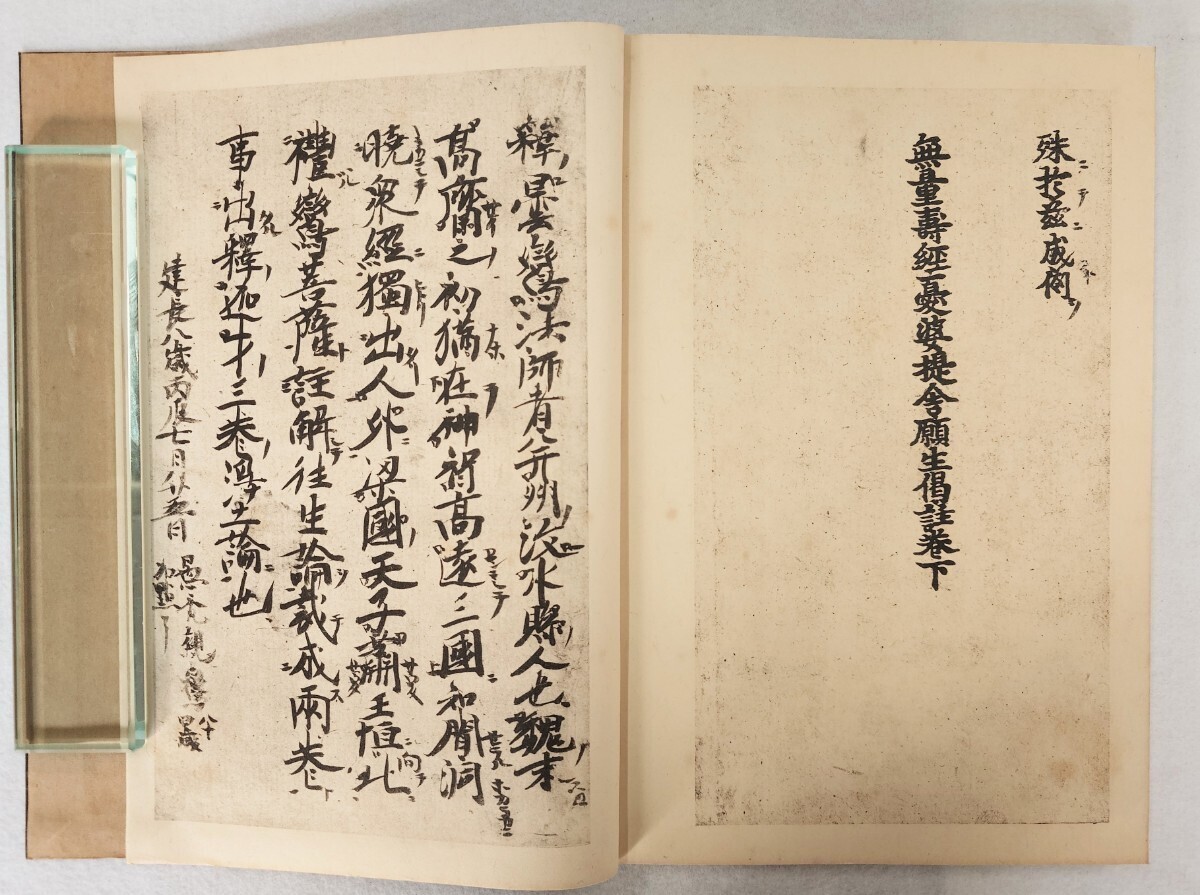 殊於茲成例
無量壽經憂婆提舍願生偈註巻下
釋曇鸞法師者并州汶水縣人也魏末
高齋之初猶在神智高遠三國知聞洞
曉衆經獨出人外梁國天子蕭王恒北
禮鸞菩薩註解往生論裁成兩巻
事出釋迦才三巻淨土論也
建長八歳丙辰七月廿五日
愚禿親鸞
加點了